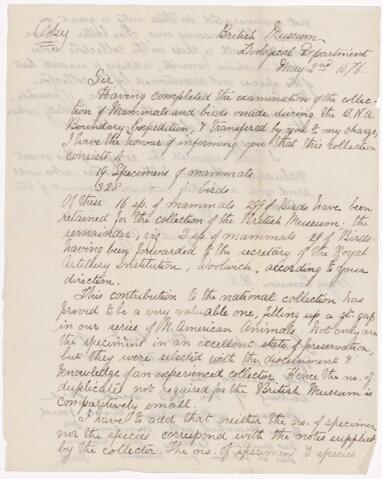 Copy
British Museum
Zoological Department
May 2nd 1876.
Sir
Having completed the examination of the collec-
tion of Mammals and birds made during the B.N.A.
Boundary Expedition, & transferred by you to my charge,
I have the honour of informing you that this collection
consists of
19 Specimens of mammals
328 " of birds
Of these 16 sp. of mammals 299 of Birds have been
retained for the collection of the British Museum: the
remainder, viz 3 sp. of mammals 29 of Birds
having been forwarded to the secretary of the Royal
Artillery Institution, Woolwich, according to your
direction.
This contribution to the national collection has
proved to be a very valuable one, filling up a gt. gap
in our series of N. American Animals. Not only are
the specimen in an excellent state of preservation,
but they were selected with the discernment &
knowledge of an experienced collector. Hence the no. of
duplicates not required for the British Museum is
comparitively small.
I have to add that neither the no. of specimen
nor the species correspond with the notes supplied
by the collector. The no. of specimen & species